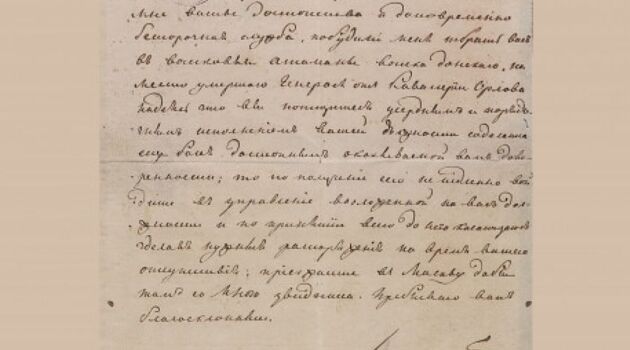 мне ваше достоинства и долговременно
беспорочная служба, побудили меня избрать васъ
въ войсковыя атаманы войска донскаго, на
место умершаго Генерала отъ Кавалеріи Орлова
надеясь что вы потщитесь усерднымъ и
исполненіемъ вашей должности
васъ достойнымъ оказываемой вамъ дове-
ренности; то по полученіи сего не медленно вой-
дите въ управленіе возложенной на васъ дол-
жности и по принятіи всего до него касающагося
зделавъ нужные распоряженія на время вашего
отсутствія; приезжайте въ Маскву да бы
тамъ со мною увидится. Пребываю вамъ
благосклонный.